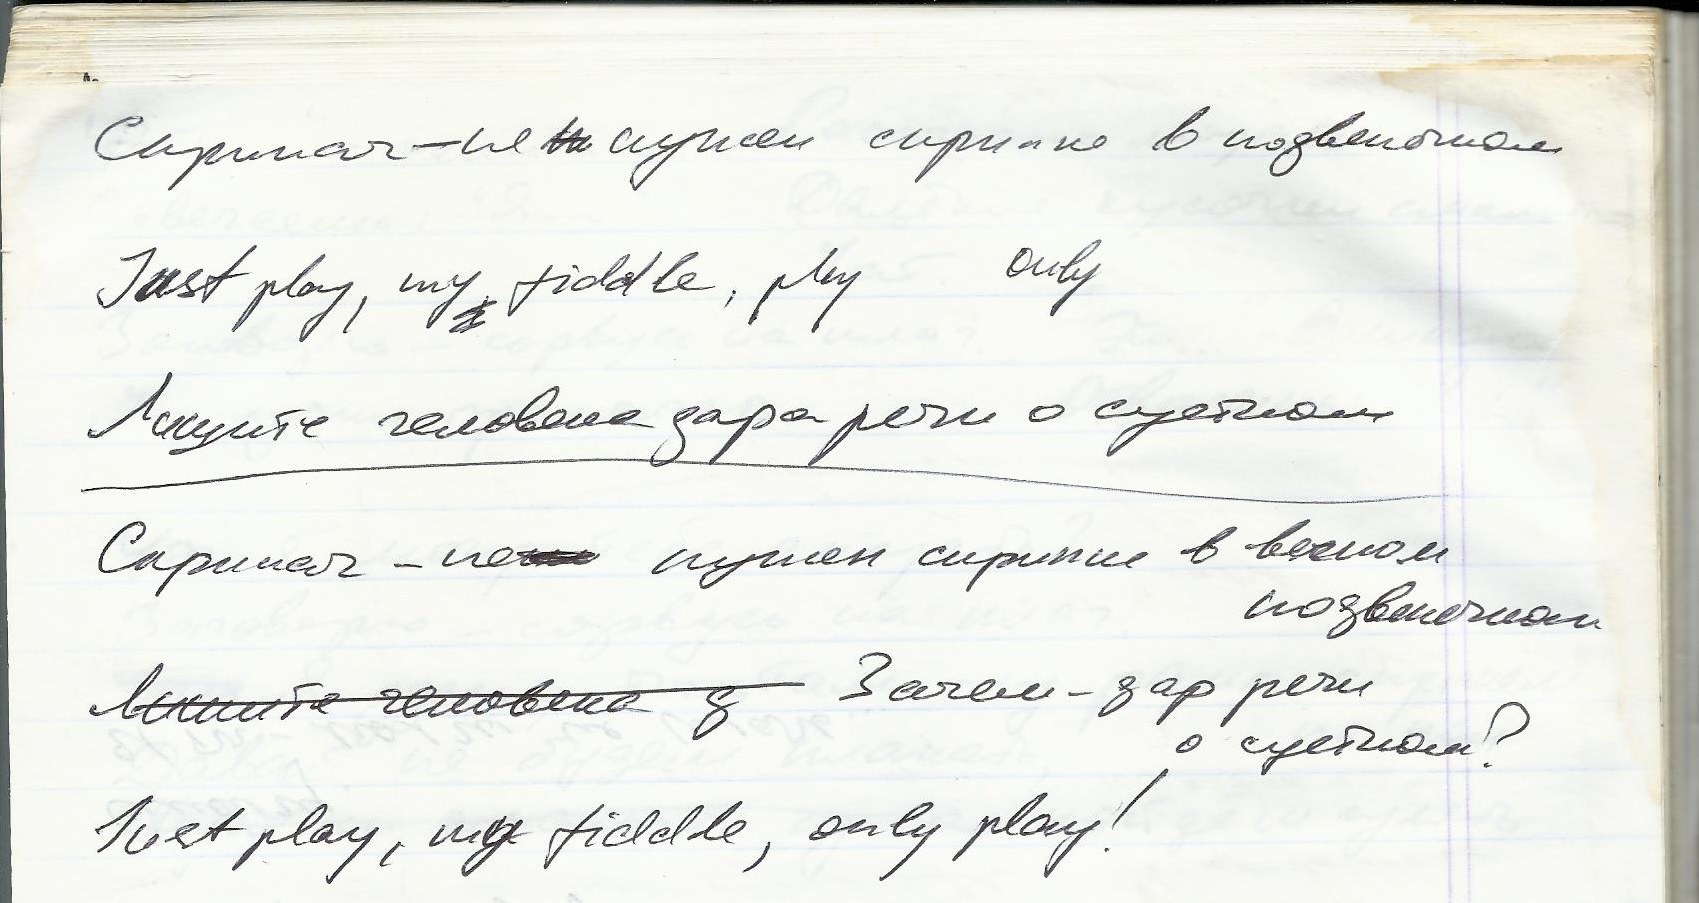 Скрипач – не нужен скрипке в позвеночном
Just play, my fiddle, play only
Лишите человека дара речи о суетном
Скрипач – не нужен скрипке в вечном
позвеночном
Лишите человека д Зачем – дар речи
о суетном?
Just play, my fiddle, only play!